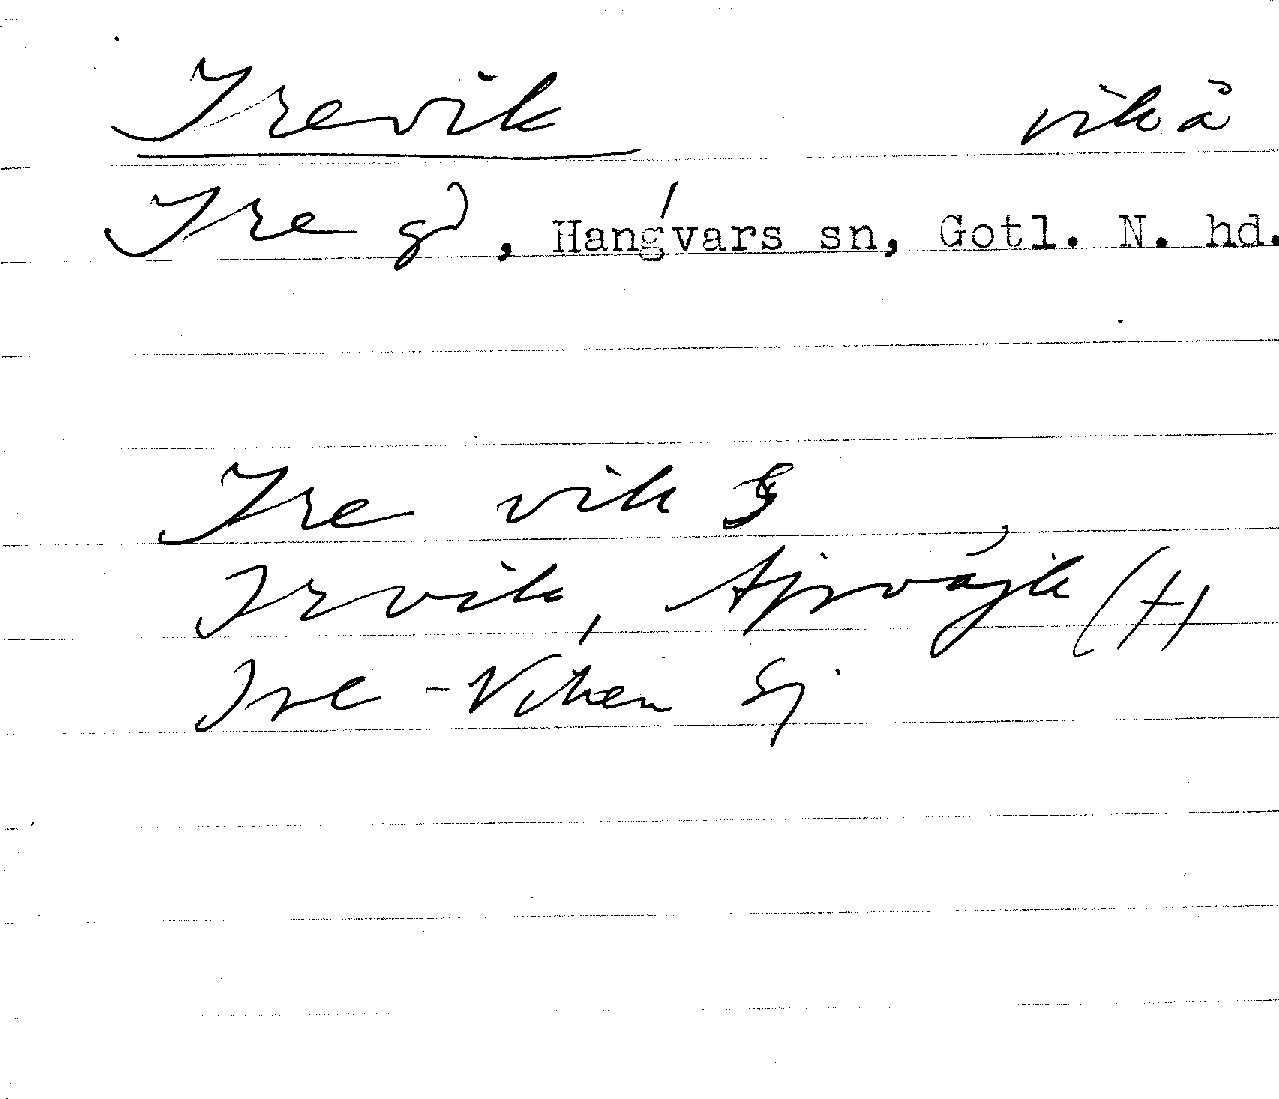 Irevik vik å
Ire gd, Hangvars sn, Gotl. N. hd.
Ire vik G
Irvik, Ajrvájk (H)
Ire-Viken Sj